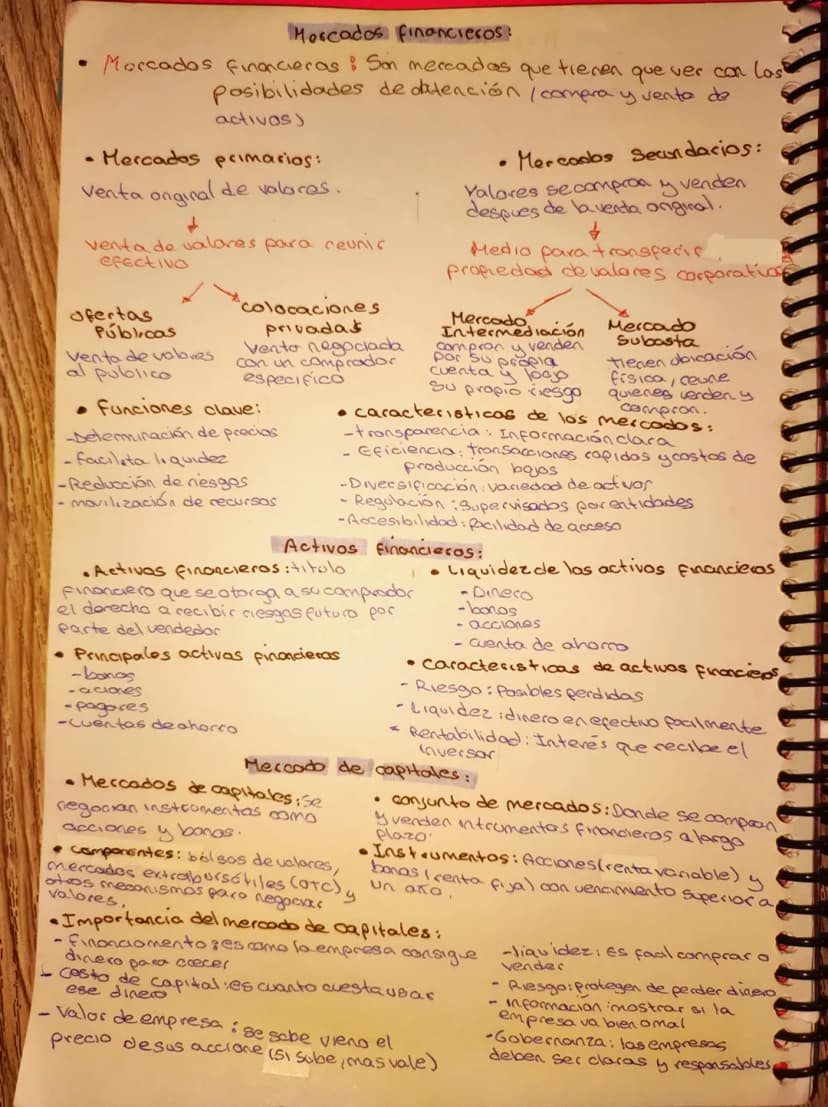 Mercados financieros:
• Mercados financieros: Son mercados que tienen que ver con las
posibilidades de obtención (compra y venta de
activos)
• Mercados primarios:
Venta original de valores.
Venta de valores para reunir
efectivo
Ofertas
Públicas
Venta de valores
al publico
colocaciones
privadas
Venta negociada
con un comprador
especifico
• Mercados Secundarios:
Valores se compran y venden
despues de la venta original.
Medio para transferir
propiedad de valores corporativos
Mercado
Intermediación
compran y venden
por su propia
cuenta y bajo
su propio riesgo
Mercado
Subasta
tienen ubicación
física, reune
quienes venden y
compran.
• Funciones clave:
-Determinación de precios
- facilita liquidez
-Reducción de riesgos
- movilización de recursos
• características de los mercados:
- transparencia: Información clara
- Eficiencia: transacciones rapidas y costos de
producción bajos
-Diversificación: variedad de activos
- Regulación: Supervisados por entidades
-Accesibilidad: facilidad de acceso
Activos financieros:
• Activos financieros: titulo
financiero que se otorga a su comprador
el derecho a recibir riesgos futuro por
parte del vendedor
• Liquidez de los activos financieros
- Dinero
-bonos
- acciones
- cuenta de ahorro
• Principales activos financieros
-bonos
-aciones
-pagares
-cuentas de ahorro
• características de activos financieros
- Riesgo: Posibles perdidas
- Liquidez: dinero en efectivo facilmente
- Rentabilidad: Interés que recibe el
inversor
Mercado de capitales:
• Mercados de capitales: se
negocian instrumentos como
acciones y bonos.
• conjunto de mercados: Donde se compran
y venden intrumentos financieros a largo
plazo.
• componentes: bolsas de valores,
mercados extrabursátiles (OTC) y
otros mecanismos para negociar
valores.
• Instrumentos: Acciones (renta variable) y
bonos (renta fija) con vencimiento superior a
un año.
• Importancia del mercado de capitales:
- financiamento: es como la empresa consigue
dinero para crecer
- costo de capital: es cuanto cuesta usar
ese dinero
- Valor de empresa: se sabe vieno el
precio de sus accione (si sube, mas vale)
-liquidez: Es facil comprar o
vender
- Riesgo: protegen de perder dinero
- información: mostrar si la
empresa va bien o mal
-Gobernanza: las empresas
deben ser claras y responsables